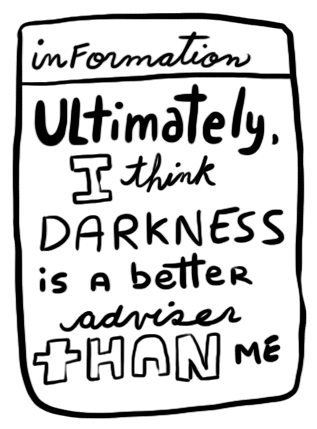 inFormation
ULtimately,
I think
DARKNESS
is A better
adviser
tHAN ME